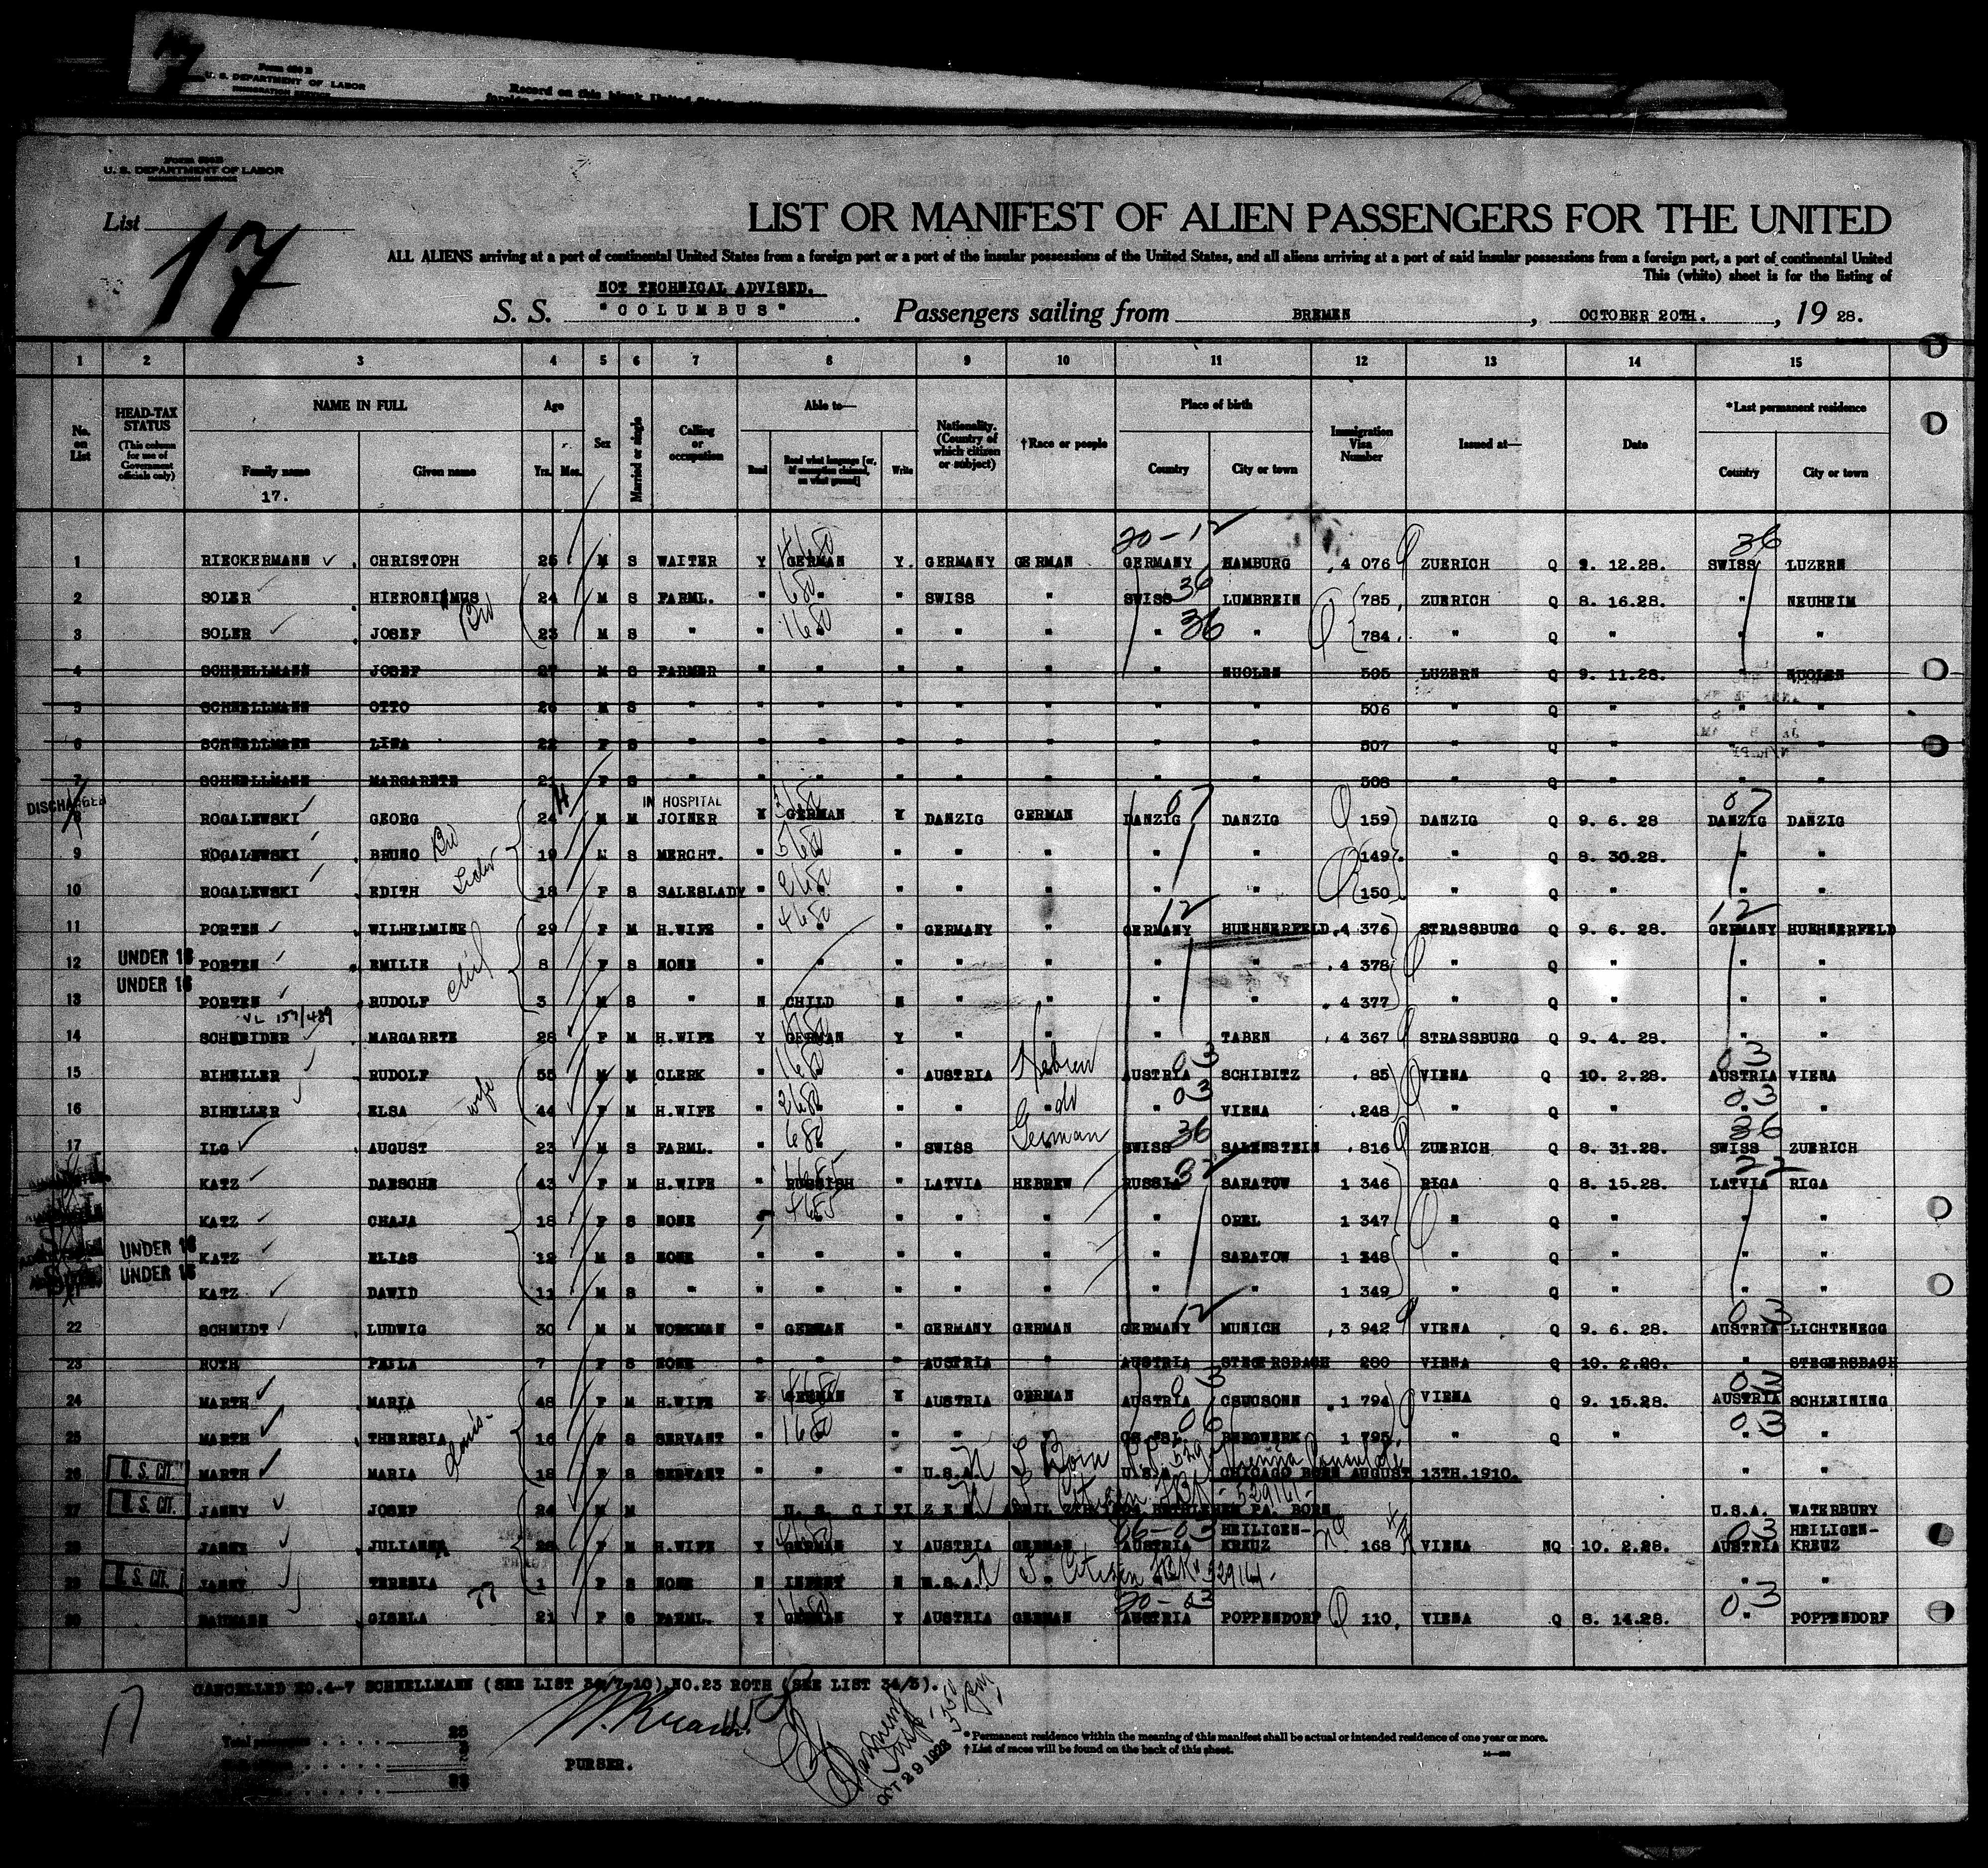 Form 500 B
U. S. DEPARTMENT OF LABOR
IMMIGRATION SERVICE
Record on this blank United States
U. S. DEPARTMENT OF LABOR
IMMIGRATION SERVICE
List 17
LIST OR MANIFEST OF ALIEN PASSENGERS FOR THE UNITED
ALL ALIENS arriving at a port of continental United States from a foreign port or a port of the insular possessions of the United States, and all aliens arriving at a port of said insular possessions from a foreign port, a port of continental United
This (white) sheet is for the listing of
NOT TECHNICAL ADVISED.
S. S. "COLUMBUS". Passengers sailing from BREMEN, OCTOBER 20TH., 1928.
1 2 3 4 5 6 7 8 9 10 11 12 13 14 15
No. on List
HEAD-TAX STATUS (This column for use of Government officials only)
NAME IN FULL Family name Given name
17.
Age Yrs. Mos.
Sex
Married or single
Calling or occupation
Able to— Read Read what language [or, if exemption claimed, on what ground] Write
Nationality. (Country of which citizen or subject)
†Race or people
Place of birth Country City or town
Immigration Visa Number
Issued at—
Date
*Last permanent residence Country City or town
20-12 36
1 RIECKERMANN CHRISTOPH 25 M S WAITER Y GERMAN Y GERMANY GERMAN GERMANY HAMBURG 4 076 ZUERICH Q 9. 12.28. SWISS LUZERN
2 SOLER HIERONIMUS 24 M S FARML. " " " SWISS " SWISS 36 LUMBREIN 785 ZUERICH Q 8. 16.28. " NEUHEIM
3 SOLER JOSEF Bro 23 M S " " " " " " " 36 " 784 " Q " " "
4 SCHNELLMANN JOSEF 27 M S FARMER " " " " " " NUOLEN 505 LUZERN Q 9. 11.28. " NUOLEN
5 SCHNELLMANN OTTO 26 M S " " " " " " " " 506 " Q " " "
6 SCHNELLMANN LINA 22 F S " " " " " " " " 507 " Q " " "
7 SCHNELLMANN MARGARETE 21 F S " " " " " " " " 508 " Q " " "
DISCHARGED IN HOSPITAL 07 07
8 ROGALEWSKI GEORG 24 M M JOINER Y GERMAN Y DANZIG GERMAN DANZIG DANZIG 159 DANZIG Q 9. 6. 28 DANZIG DANZIG
9 ROGALEWSKI BRUNO Bro 19 M S MERCHT. " " " " " " " 149 " Q 8. 30.28. " "
10 ROGALEWSKI EDITH Sister 18 F S SALESLADY " " " " " " " 150 " Q " " "
12 12
11 PORTEN WILHELMINE 29 F M H.WIFE " " " GERMANY " GERMANY HUEHNERFELD 4 376 STRASSBURG Q 9. 6. 28. GERMANY HUEHNERFELD
UNDER 16
12 PORTEN EMILIE 8 F S NONE " " " " " " " 4 378 " Q " " "
UNDER 16
13 PORTEN RUDOLF child 3 M S " N CHILD N " " " " 4 377 " Q " " "
14 SCHNEIDER MARGARETE 28 F M H.WIFE Y GERMAN Y " " " TABEN 4 367 STRASSBURG Q 9. 4. 28. " "
15 BIHELLER RUDOLF 55 M M CLERK " " " AUSTRIA Hebrew AUSTRIA 03 SCHIBITZ 85 VIENA Q 10. 2.28. AUSTRIA 03 VIENA
16 BIHELLER ELSA wife 44 F M H.WIFE " " " " do " 03 VIENA 248 " Q " " 03 "
17 ILG AUGUST 23 M S FARML. " " " SWISS German SWISS 36 SALENSTEIN 816 ZUERICH Q 8. 31.28. SWISS 36 ZUERICH
KATZ DAESCHE 43 F M H.WIFE " RUSSISH " LATVIA HEBREW RUSSIA 32 SARATOW 1 346 RIGA Q 8. 15.28. LATVIA 22 RIGA
KATZ CHAJA 18 F S NONE " " " " " " OREL 1 347 " Q " " "
UNDER 16
KATZ ELIAS 12 M S NONE " " " " " " SARATOW 1 348 " Q " " "
UNDER 16
KATZ DAWID 11 M S " " " " " " " " 1 349 " Q " " "
22 SCHMIDT LUDWIG 30 M M WORKMAN " GERMAN " GERMANY GERMAN GERMANY 12 MUNICH 3 942 VIENA Q 9. 6. 28. AUSTRIA 03 LICHTENEGG
23 ROTH PAULA 7 F S NONE " " " AUSTRIA " AUSTRIA STEGERSBACH 280 VIENA Q 10. 2.28. " STEGERSBACH
24 MARTH MARIA 48 F M H.WIFE Y GERMAN Y AUSTRIA GERMAN AUSTRIA 03 CSUCSONN 1 794 VIENA Q 9. 15.28. AUSTRIA 03 SCHLEINING
25 MARTH THERESIA 16 F S SERVANT " " " " " CS.SL. 06 BERGWERK 1 795 " Q " " 03 "
U. S. CIT.
26 MARTH MARIA 18 F S SERVANT " " " U.S.A. U S Born U.S.A. CHICAGO BORN AUGUST 13TH.1910. " "
U. S. CIT.
27 JANNY JOSEF 24 M M U. S. CITIZEN BETHLEHEM PA. BORN U.S.A. WATERBURY
28 JANNY JULIANNA F M H.WIFE Y GERMAN Y AUSTRIA GERMAN AUSTRIA HEILIGEN-KREUZ 168 VIENA NQ 10. 2.28. AUSTRIA 03 HEILIGEN-KREUZ
U. S. CIT.
29 JANNY TERESIA 1 F S NONE N INFANT N U.S.A. U S Citizen " "
30 BAUMANN GISELA 21 F S FARML. Y GERMAN Y AUSTRIA GERMAN AUSTRIA POPPENDORF 110 VIENA Q 8. 14.28. " 03 POPPENDORF
CANCELLED NO.4-7 SCHNELLMANN (SEE LIST 34/7-10),NO.23 ROTH (SEE LIST 34/5).
17
Total passengers 25
PURSER.
OCT 29 1928
* Permanent residence within the meaning of this manifest shall be actual or intended residence of one year or more.
† List of races will be found on the back of this sheet.